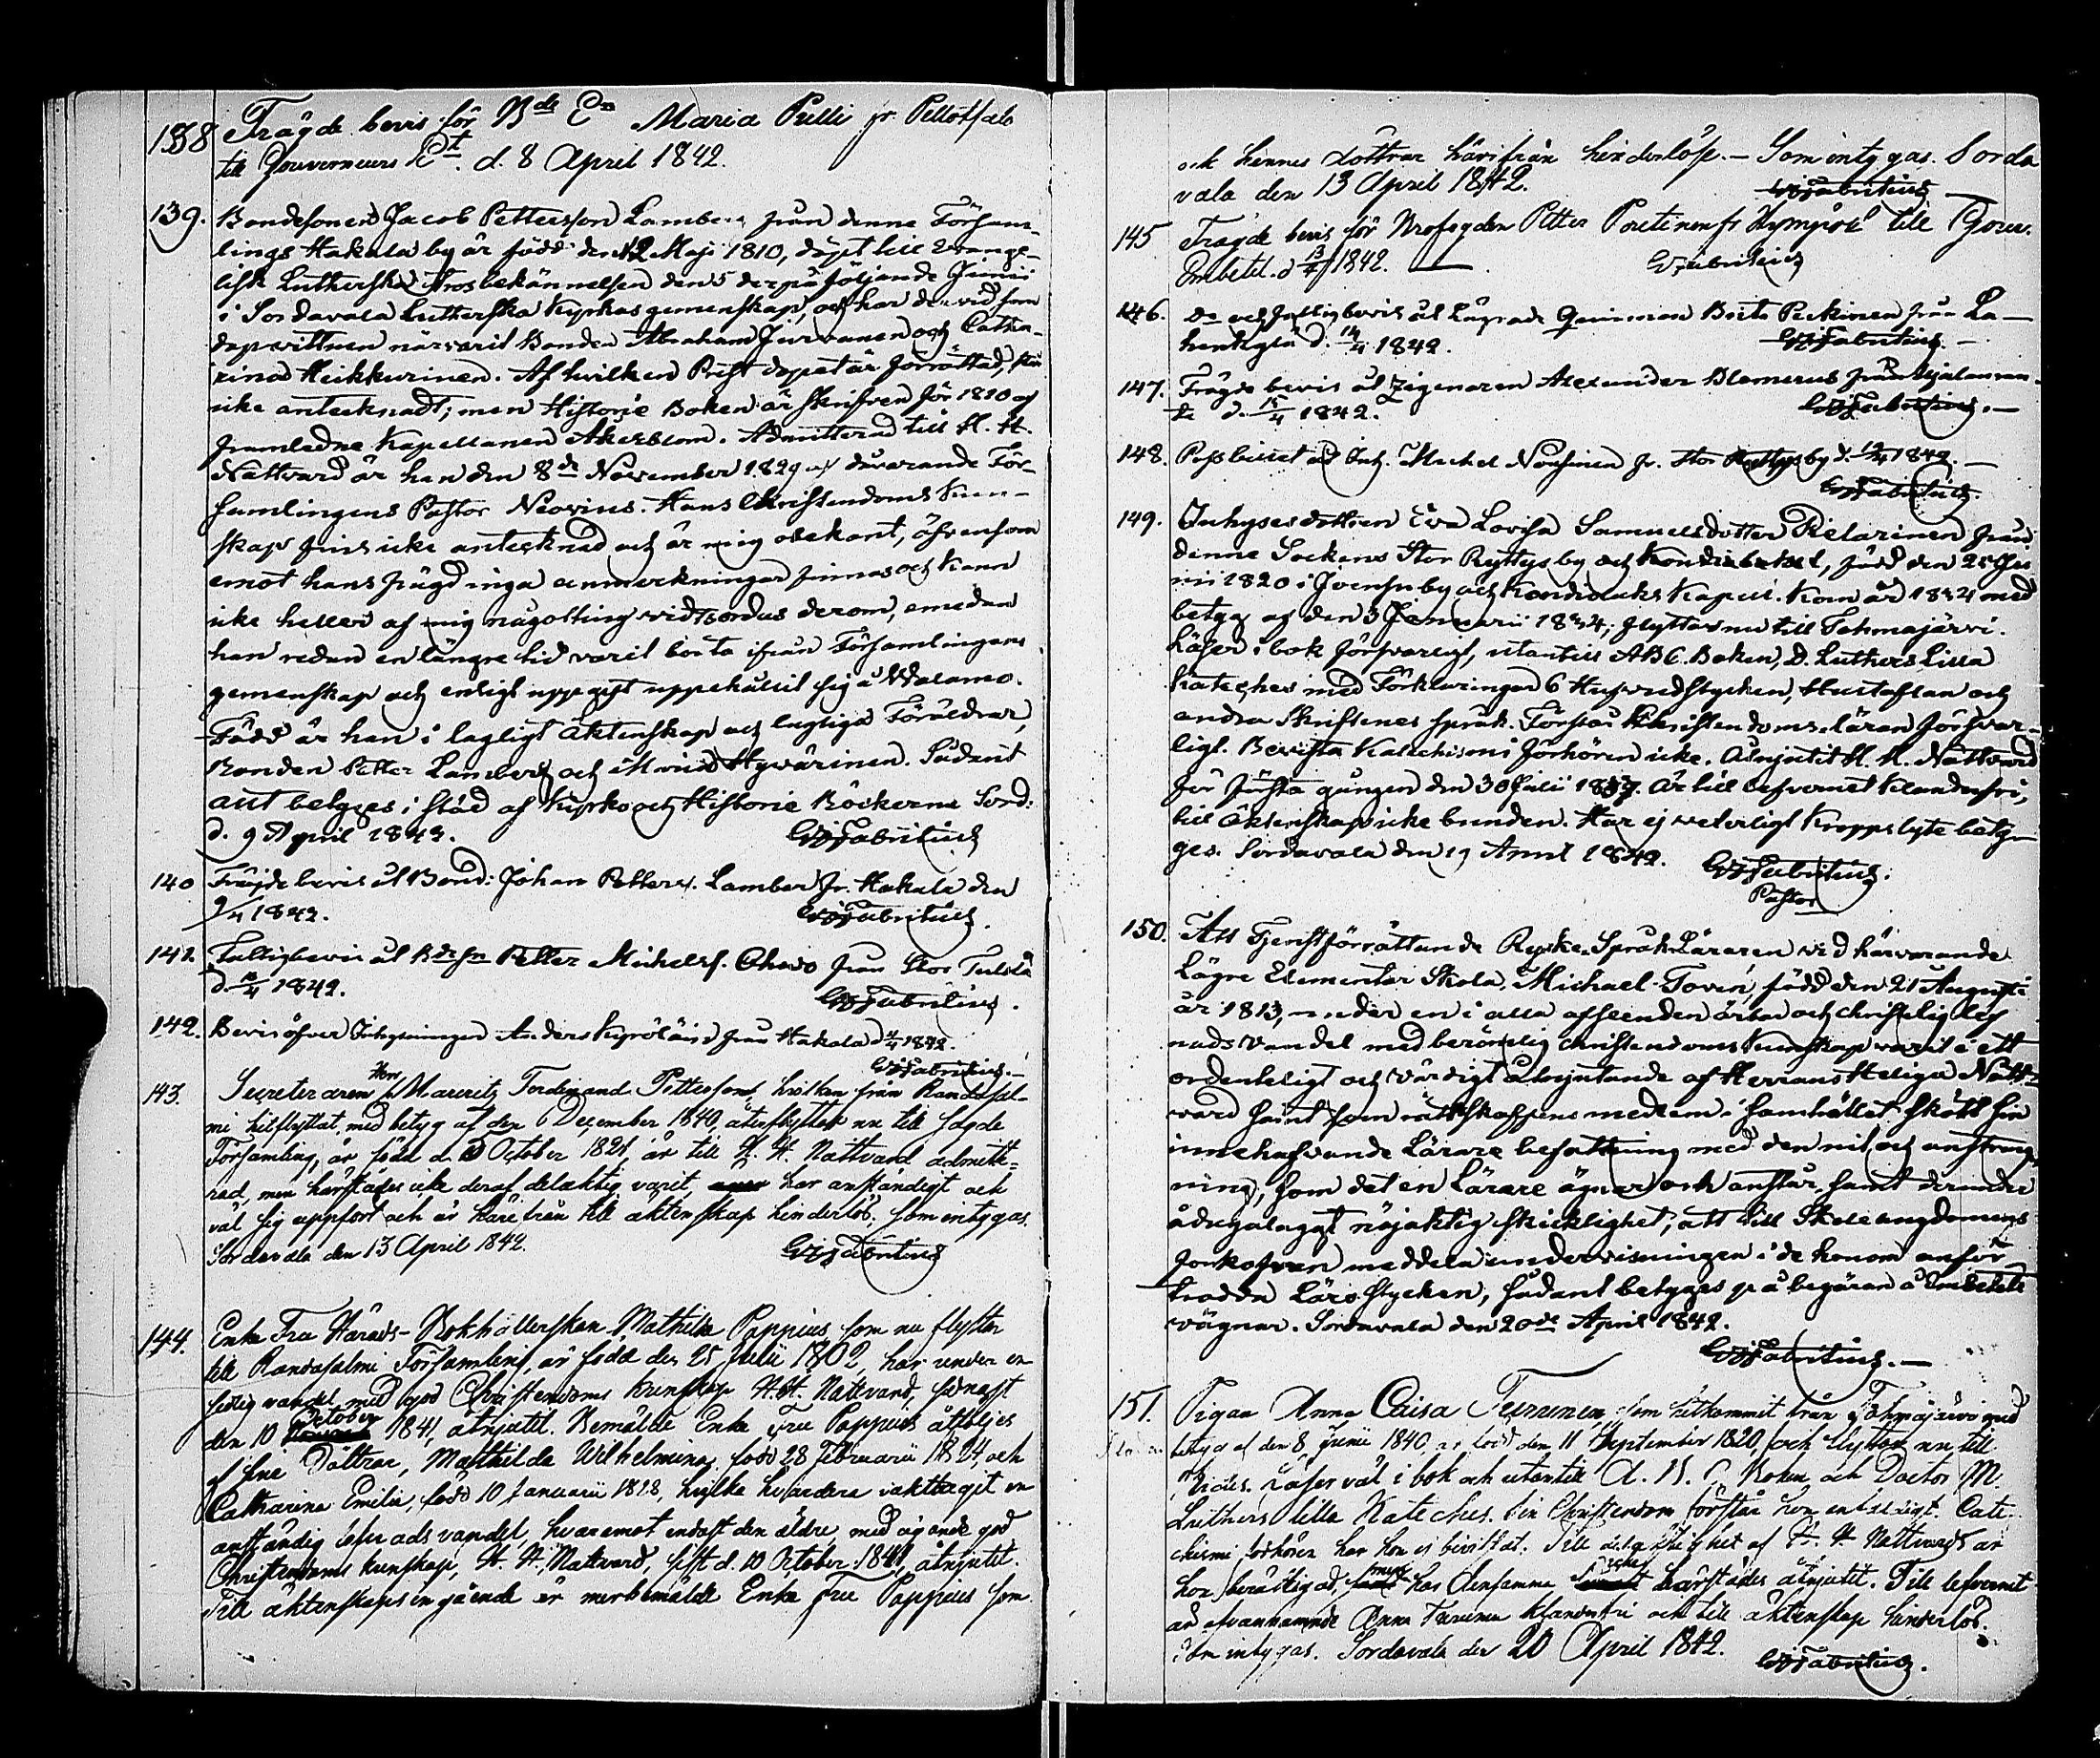 138 Frägde bevis för Bde En Maria Pulli fr. Pellotsalo
till Gouverneurs Et. d. 8 April 1842.
139. Bondesonen Jacob Pettersson Lamberg från denne Försam-
lings Hakala by är född den 12 Maji 1810, döpt till Evange-
lisk Lutherska Trosbekännelsen den 5 derpå följande Junii
i Sordavala Lutherska Kyrkas gemenskap, och har dervid som
dopvittnen närvarit Bonden Abraham Hirvonen och Catha-
rina Heikkurinen. Af hvilken Prest dopet är förrättad, står
icke antecknadt; men Historie Boken är skrifven för 1810 af
framledne Kapellanen Åkerblom. Admitterad till H. H.
Nattvard är han den 8de November 1829 af dåvarande För-
samlingens Pastor Neovius. Hans Christendoms kun-
skap fins icke antecknad och är mig obekant, äfvensom
emot hans frägd inga anmerkningar finnas och kann
icke heller af mig någotting vidtsordas derom, emedan
han redan en längre tid varit borta ifrån Församlingens
gemenskap och enligt uppgift uppehållit sig å Walamo.
Född är han i lagligt Äktenskap och lagliga Föräldrar,
Bonden Petter Lamberg och Maria Hyvärinen. Sådant
allt betyges i stöd af Kyrko och Historie Böckerne Sord:
d. 9 April 1842. Fabritius
140 Frägde bevis åt Bond: Johan Petters. Lamberg fr. Hakala den
9/4 1842. Fabritius.
141. Fattigbevis åt Bdesn Petter Michelss. Ohvo från Stor
d. 1842. Fabritius.
142. Bevis öfver Inhysningen Anders Kyröläin från Hakala d. 1842.
Fabritius.
143. Secreteraren Herr Mauritz Ferdinand Pettersson, hvilken från Randasal-
mi hitflyttat, med betyg af den 6 December 1840, återflyttar nu till sagde
Församling, är född d. October 1821, är till H. H. Nattvard admitte-
rad, men härstädes icke deraf delaktig varit, har anständigt och
väl sig uppfört och är härifrån till äktenskap hinderlös. Som intygas.
Sordavala den 13 April 1842. Fabritius
144. Enke Fru Härads-Bokhållerskan Mathilda Poppius, som nu flyttar
till Randasalmi Församling, är född den 25 Julii 1802, har under en
sedig vandel med god Christendoms kunskap H. H. Nattvard, senast
den 10 October 1841, åtnjutit. Bemälde Enke Fru Poppius åtföljes
af sine Döttrar, Mathilda Wilhelmina, född 28 Februarii 1824, och
Catharina Emilia, född 10 Januarii 1828, hvilka hvardera iakttagit en
anständig lefnads vandel, hvaremot endast den äldre, med ägande god
Christendoms kunskap, H. H. Nattvard, sist d. 10 October 1841, åtnjutit.
Till äktenskaps ingående är merbemälde Enke Fru Poppius som
och hennes döttrar härifrån hinderlöse. – Som intygas. Sorda
vala den 13 April 1842. Fabritius
145 Frägde bevis för Krofogden Petter fr Kympöle till Gouv.
Embetet. d 13/4 1842. Fabritius
146. do och fattigbevis åt Lägrade Qvinnan Brita Peckinen från La-
hentaglä d. 14/4 1842. Fabritius.
147. Frägde bevis åt Zigenaren Alexander Blomerus från
d. 15/4 1842. Fabritius.
148. Passbillet åt Inh. Michel Nousinen fr. Stor Ryttysby d. 1842.
Fabritius.
149. Inhysesdottren Eva Lovisa Samuelsdotter Rielarinen från
denne Sockens Stor Ryttysby och , född den 25 Ju
nii 1820 i Joensuuby och Kondiolaks Kapell. Kom år 1834 med
betyg af den 3 Januarii 1834; flyttar nu till Tohmajärvi.
Läser i bok försvarligt, utantill ABC. Boken, D. Luthers Lilla
Kateches med Förklaringar 6 Hufvudstycken, Hustaflan och
andra Skriftenes språk. Förstår Christendoms läran försvar-
ligt. Bevista Katechismi förhören icke. Åtnjutit H. H. Nattvard
för första gången den 30 Julii 1837. Är till lefvernet klanderfri,
till Äktenskap icke bunden. Har ej veterligt kroppslyte betyg-
ges. Sordavala den 19 April 1842. Fabritius.
Pastor
150. Att Tjenstförrättande Ryske Språk Läraren vid härvarande
Lägre Elementar Skola, Michael Tovin, född den 21 Augusti
år 1813, under en i alla afseenden ärbar och christelig lef
nads vandel med berömlig christendoms kunskap varit i ett
ordentligt och värdigt åtnjutande af Herrans Heliga Natt-
vard samt som rättskaffens medlem i samhället skött sin
innehafvande Lärare befattning med den nit, och ansträng
ning, som det en Lärare ägnar och anstår, samt derunder
ådagalagt nöjaktig skicklighet, att till Skoleungdomens
förkofran meddela undervisningen i de honom anför
trodda Läro Stycken, sådant betyges på begäran å Embetets
vägnar. Sordavala den 20de April 1842.
Fabritius.
151. Pigan Anna Caisa Turunen, som hitkommit från Tohmajärvi med
betyg af den 8 Junii 1840, är född den 11 September 1820, och flyttar nu till
läser väl i bok och utantill A. B. C. Boken och Doctor M.
Luthers lilla Kateches. Sin Christendom förstår hon enfaldigt. Cate
chismi förhören har hon ej bivistat. Till delaktighet af H. H. Nattvard är
hon berättigad, men har densamma icke härstädes åtnjutit. Till lefvernet
är ofvannämnde Anna Turunen klanderfri och till äktenskap hinderlös.
Som intygas. Sordavala den 20 April 1842. Fabritius.